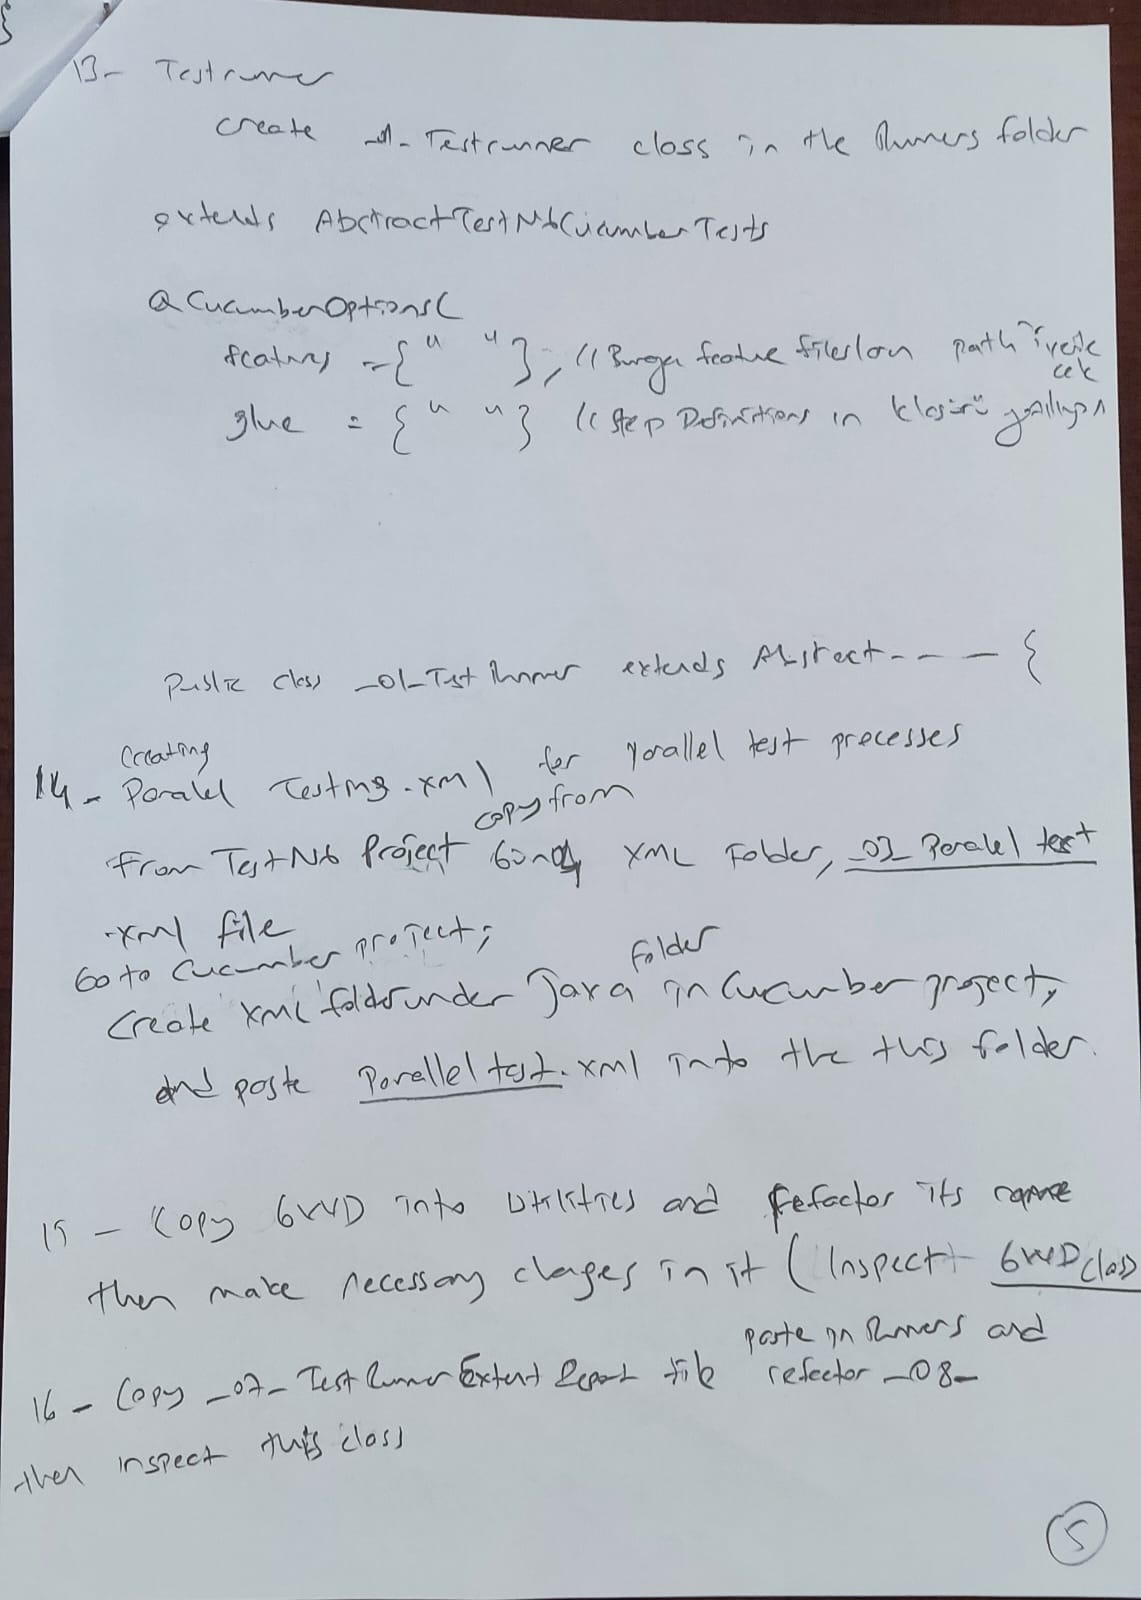 13- Testrunner
create _01_Testrunner class in the Runners folder
extends AbstractTestNGCucumberTests
@CucumberOptions(
features = {" "}, // Buraya feature filesların path i verilecek
glue = {" "} // Step Definitions in klasörü
Public class _01_Test Runner extends Abstract---- {
14- Creating Paralel Testing.xml for parallel test processes
From TestNG Project copy from XML Folder, _03_Paralel test
.xml file
Go to Cucumber project;
create 'XML' folder under Java folder in Cucumber project,
and paste Parallel test.xml into the this folder.
15 - Copy GWD into Utilities and refactor its name
then make necessary changes in it (Inspect GWD class
16 - Copy _07_TestRunnerExtent Report file paste in Runners and refactor _08_
then inspect this class
5